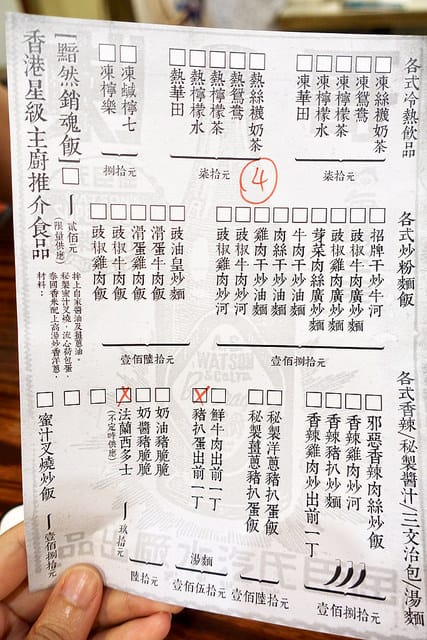 各式冷熱飲品
凍絲襪奶茶
凍鴛鴦
凍檸檬茶
凍檸檬水
凍華田
柒拾元
熱絲襪奶茶
熱鴛鴦
熱檸檬茶
熱檸檬水
熱華田
柒拾元
4
凍鹹檸七
凍檸樂
捌拾元
各式炒粉麵飯
招牌干炒牛河
豉椒牛肉炒麵
豉椒雞肉廣炒麵
芽菜肉絲廣炒麵
牛肉干炒油麵
肉絲干炒油麵
雞肉干炒油麵
豉椒牛肉炒河
豉椒雞肉炒河
壹佰捌拾元
豉油皇炒麵
滑蛋牛肉飯
滑蛋雞肉飯
豉椒牛肉飯
豉椒雞肉飯
壹佰陸拾元
各式香辣(秘製醬汁)三文治(包)湯麵
邪惡香辣肉絲炒飯
香辣雞肉炒河
香辣豬扒炒麵
香辣雞肉炒出前一丁
壹佰捌拾元
秘製洋蔥豬扒蛋飯
秘製薑蔥豬扒蛋飯
壹佰陸拾元
鮮牛肉出前一丁
X 豬扒蛋出前一丁
湯麵
壹佰伍拾元
奶油豬脆脆
奶醬豬脆脆
陸拾元
X 法蘭西多士
(不定時供應)
玖拾元
蜜汁叉燒炒飯
壹佰捌拾元
香港星級主廚推介食品
[黯然銷魂飯]
貳佰元
(限量供應)
材料：
泰國香米配上高湯炒香洋蔥，
秘製蜜汁叉燒，流心荷包蛋，
拌上自家醬油及薑蔥油。
WATSON